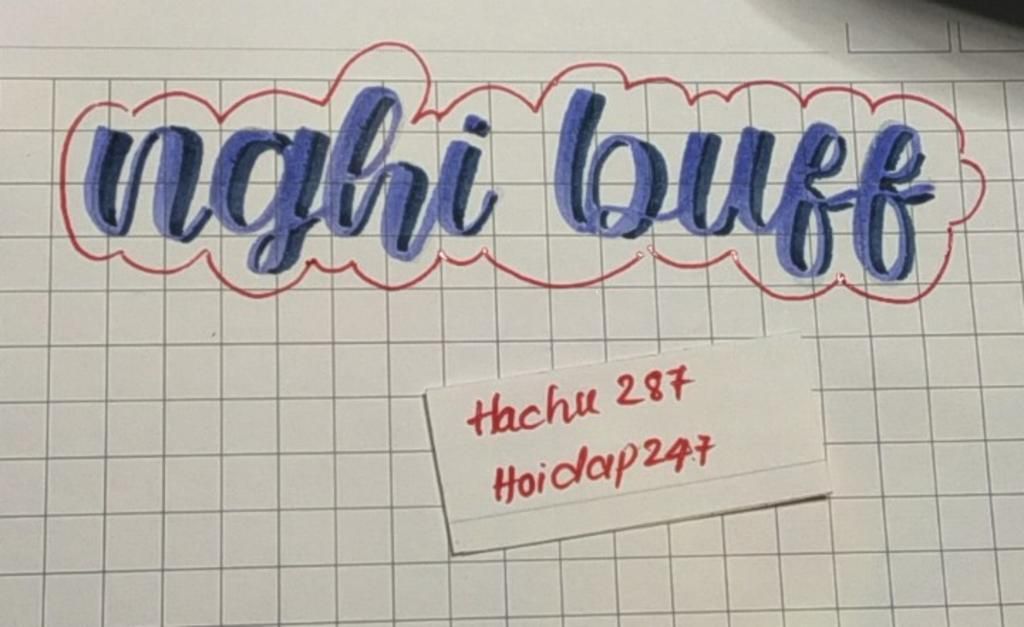 nghi buff
Hachu 287
Hoidap247